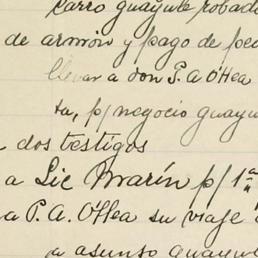 carro guayule robado
de armón y pago de peo
llevar a don P. A. O'Hea
ta, p/ negocio guayu
dos testigos
a Lic Marín p/ 1a
a P. A. O'Hea su viaje
a asunto guayule